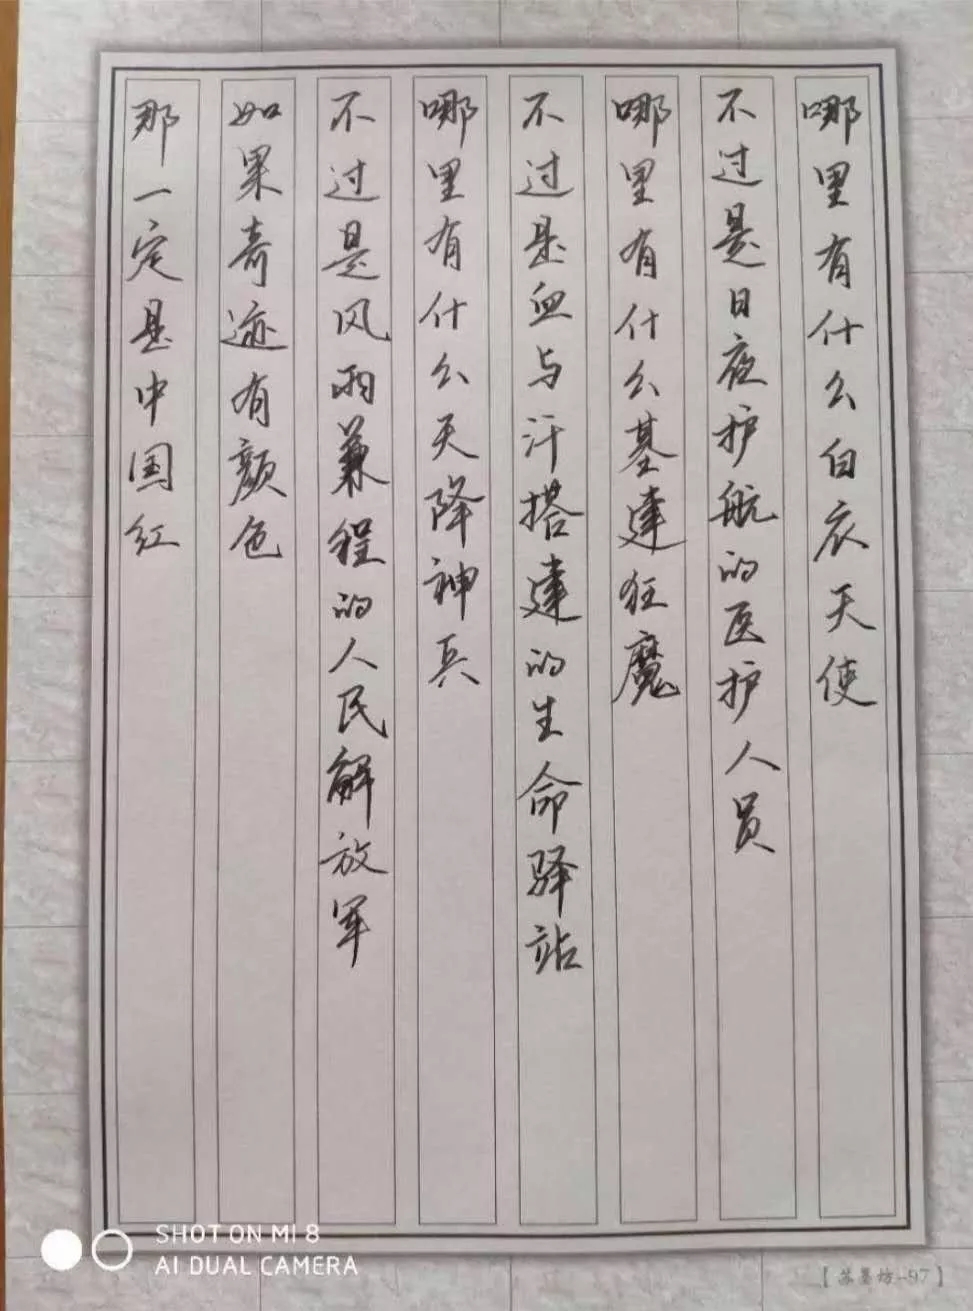 哪里有什么白衣天使
不过是日夜护航的医护人员
哪里有什么基建狂魔
不过是血与汗搭建的生命驿站
哪里有什么天降神兵
不过是风雨兼程的人民解放军
如果奇迹有颜色
那一定是中国红
SHOT ON MI 8
AI DUAL CAMERA
【苏墨坊-97】